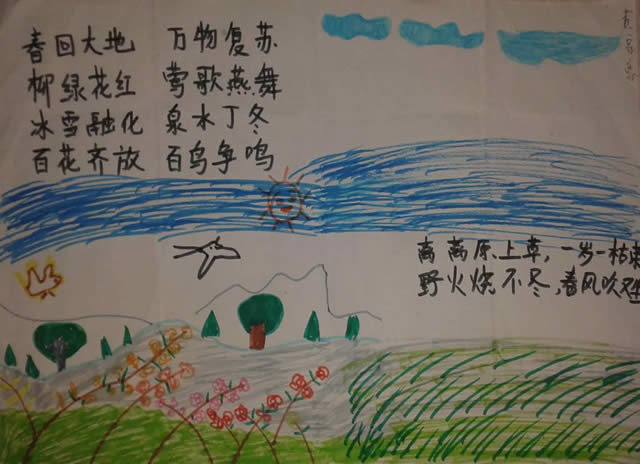 春回大地 万物复苏
柳绿花红 莺歌燕舞
冰雪融化 泉水丁冬
百花齐放 百鸟争鸣
离离原上草,一岁一枯
野火烧不冬,春风吹又生